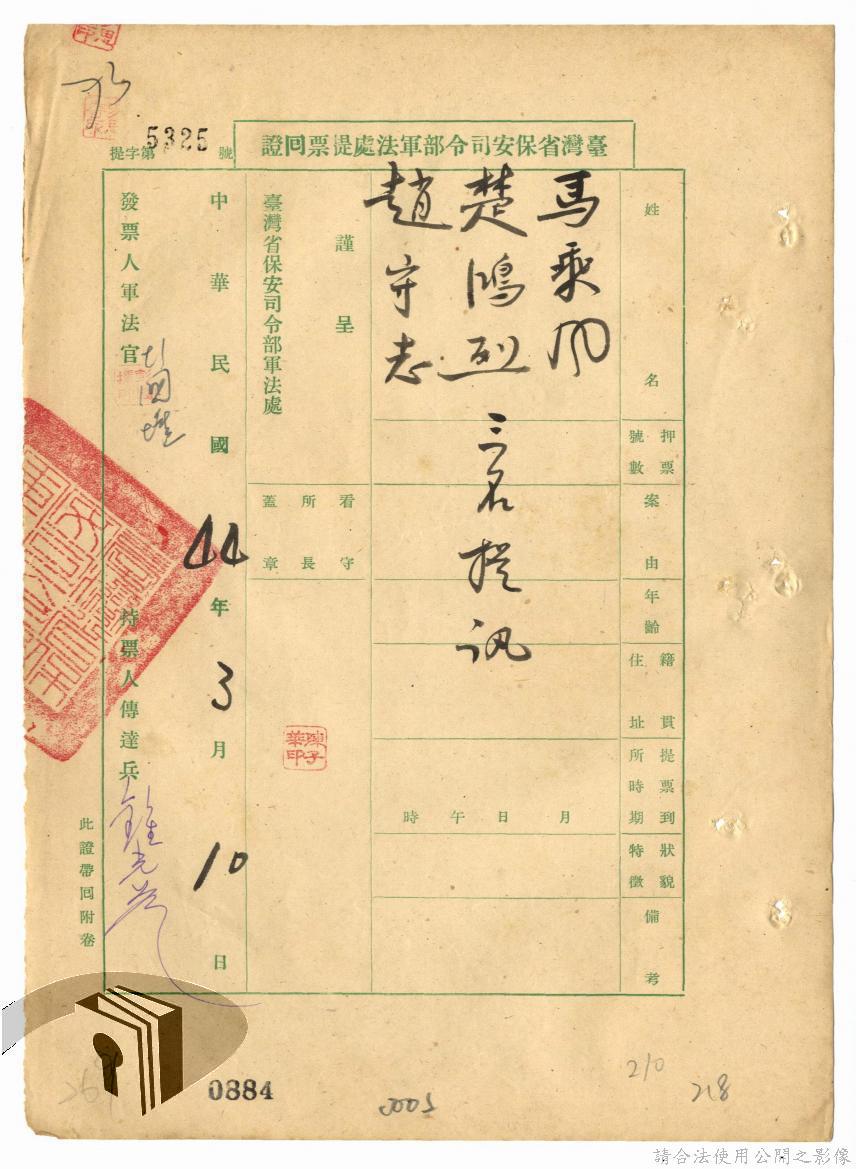 臺灣省保安司令部軍法處提票回證
提字第5325號
姓名
馬乘風
楚鴻烈 三名提訊
趙守志
押票號數
案由
年齡
籍貫住址
提票到所時期
月 日 午 時
狀貌特徵
備考
謹呈
臺灣省保安司令部軍法處
看守所長蓋章
陳子華印
中華民國44年3月10日
發票人軍法官
持票人傳達兵
此證帶回附卷
0884
210
218
請合法使用公開之影像